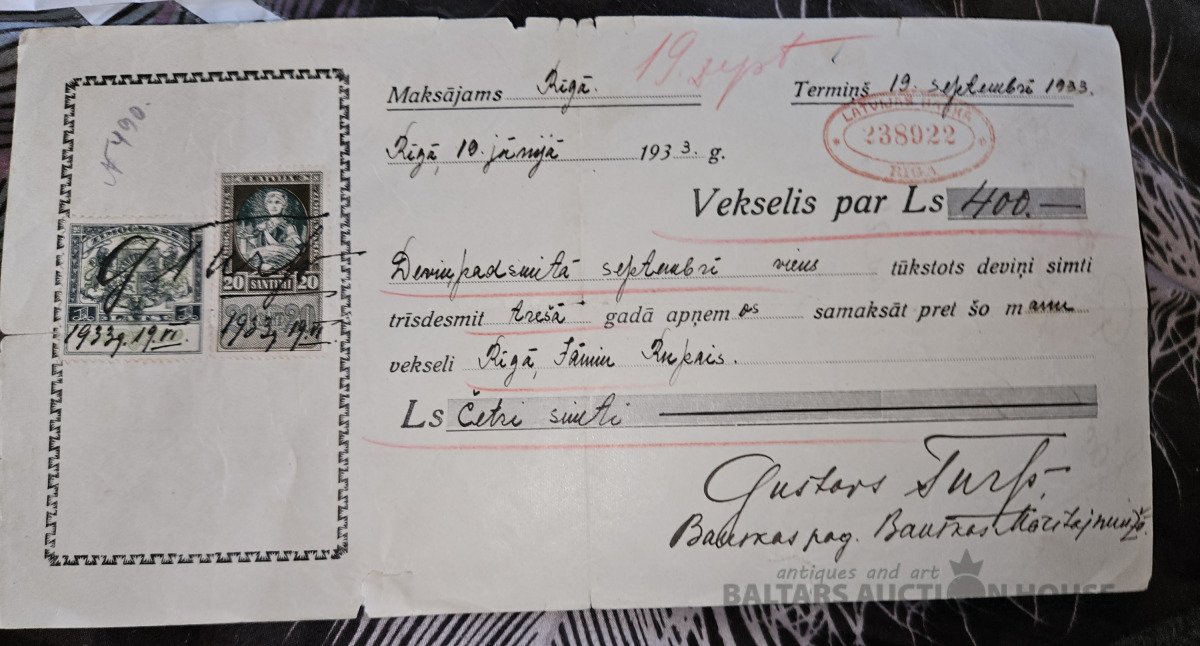 19. sept
Maksājams Rīgā.
Termiņš 19. septembrī 1933.
LATVIJAS BANKA
238922
RĪGA
Rīgā, 19. jūnijā 1933. g.
№ 490.
Vekselis par Ls 400.—
Deviņpadsmitā septembrī viens tūkstots deviņi simti
trīsdesmit trešā gadā apņemos samaksāt pret šo manu
vekseli Rīgā, Jānim Rupais.
Ls Četri simti
LATVIJA
20 SANTIMI 20
1 LATS 1
1933g. 19.VI.
1933g. 19.VI.
Gustavs
Bauskas pag. Bauskas
antiques and art
BALTARS AUCTION HOUSE